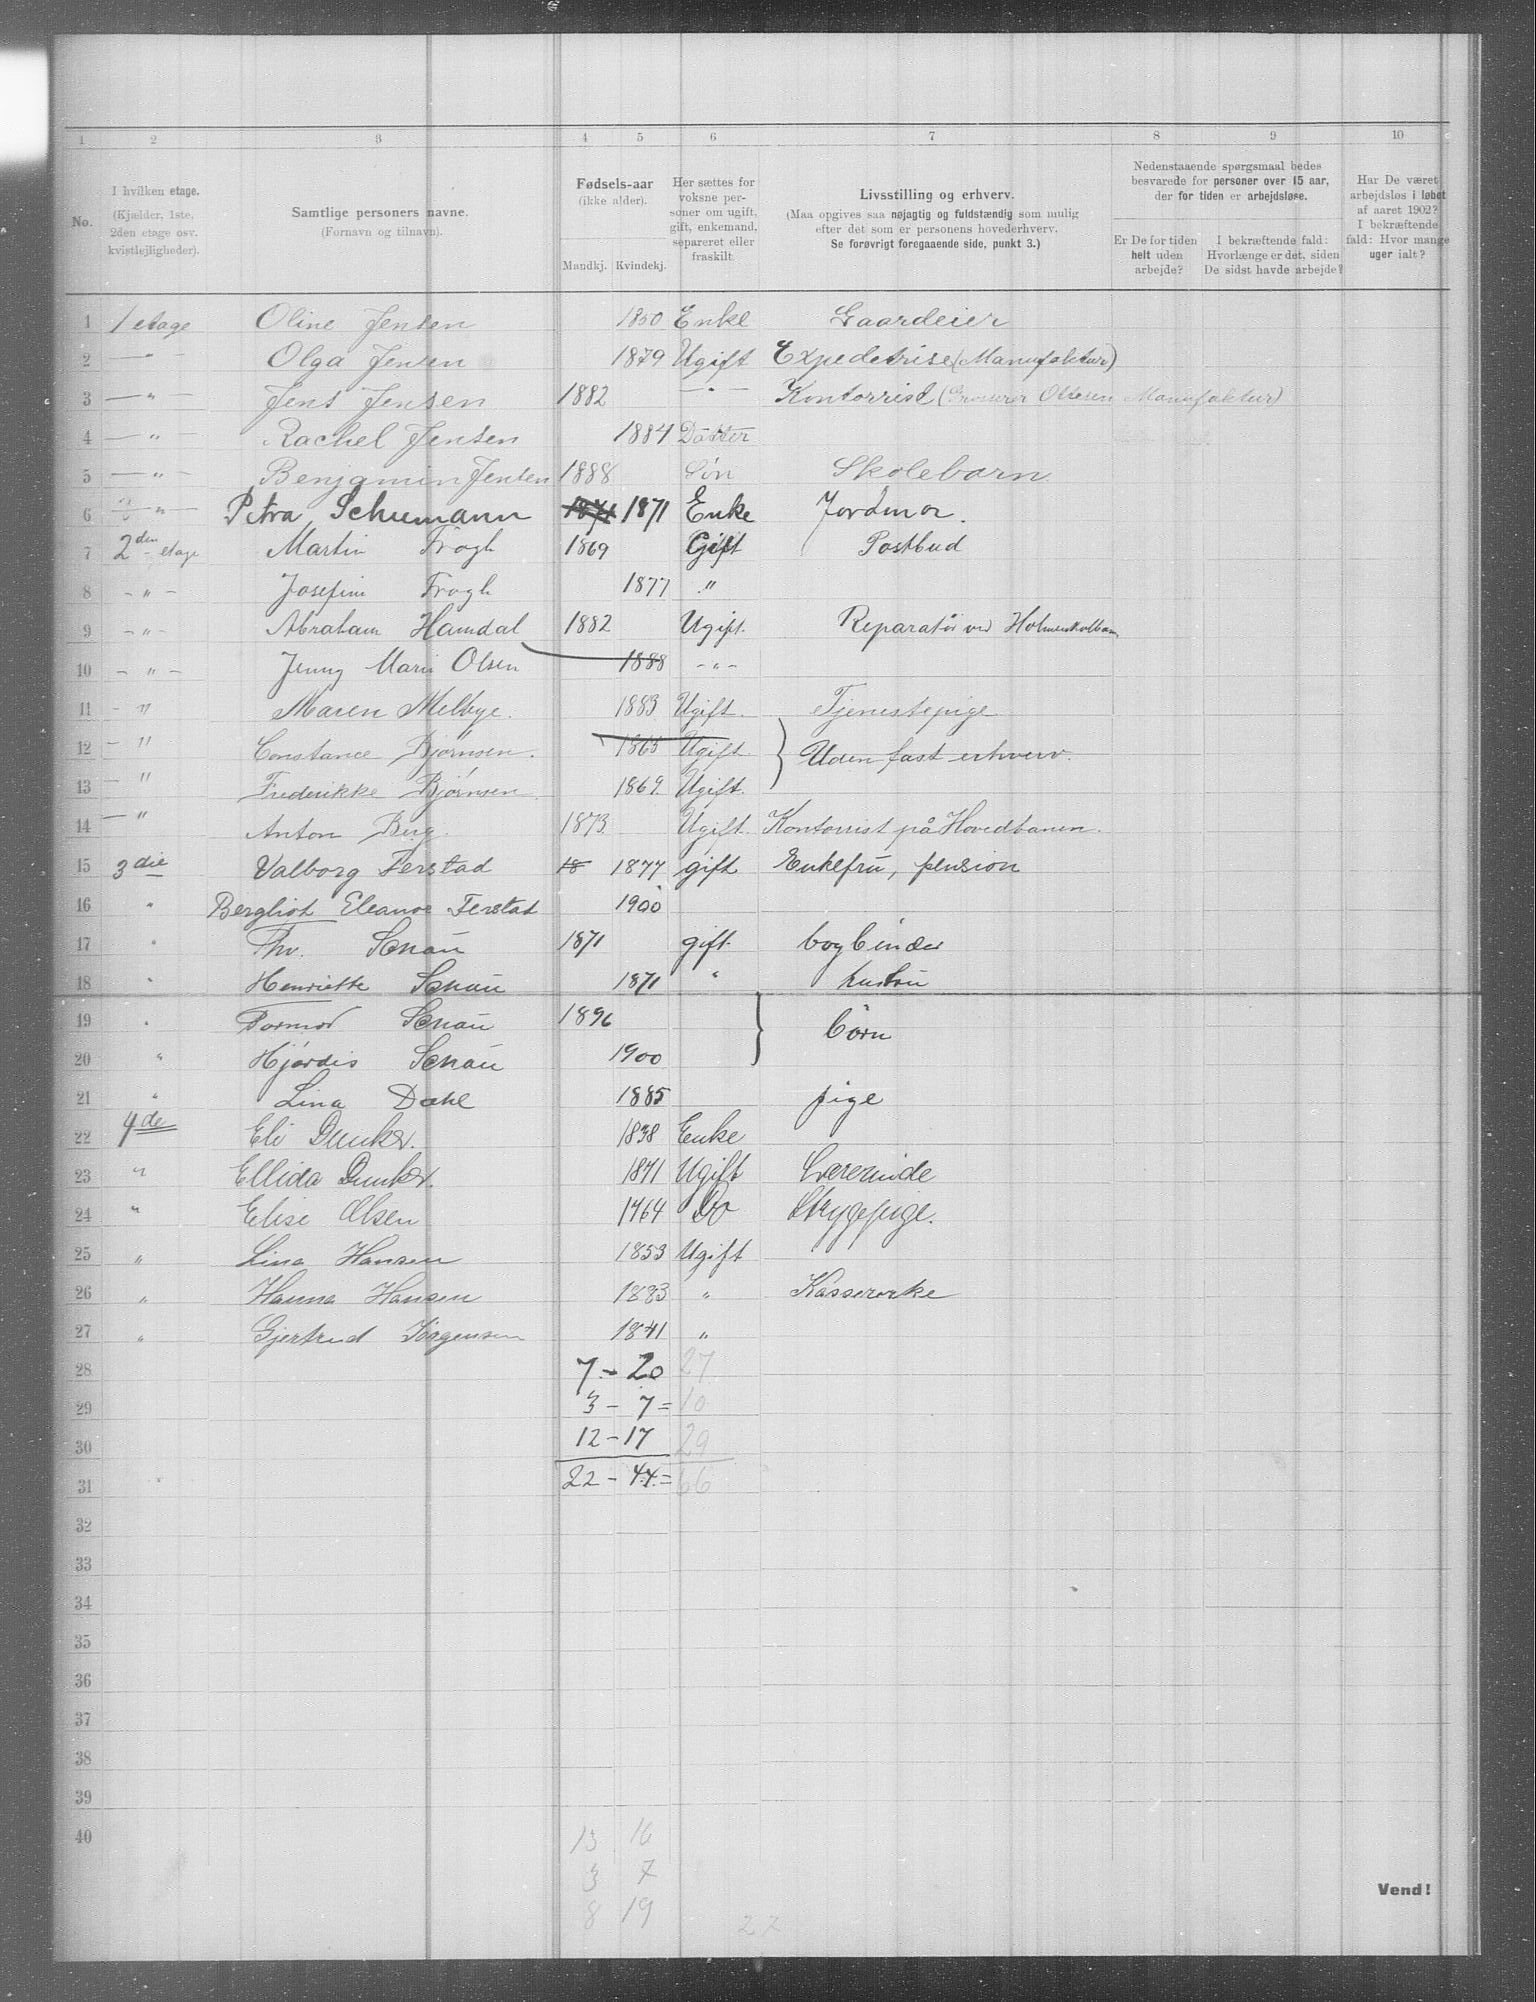 1 2 3 4 5 6 7 8 9 10
No.
I hvilken etage.
(Kjælder, 1ste,
2den etage osv.
kvistlejligheder).
Samtlige personers navne.
(Fornavn og tilnavn).
Fødsels-aar
(ikke alder).
Mandkj. Kvindekj.
Her sættes for
voksne per-
soner om ugift,
gift, enkemand,
separeret eller
fraskilt
Livsstilling og erhverv.
(Maa opgives saa nøjagtig og fuldstændig som mulig
efter det som er personens hovederhverv.
Se forøvrigt foregaaende side, punkt 3.)
Nedenstaaende spørgsmaal bedes
besvarede for personer over 15 aar,
der for tiden er arbejdsløse.
Er De for tiden
helt uden
arbejde?
I bekræftende fald:
Hvorlænge er det, siden
De sidst havde arbejde?
Har De været
arbejdsløs i løbet
af aaret 1902?
I bekræftende
fald: Hvor mange
uger ialt?
1 1 etage Oline Jensen 1850 Enke Gaardeier
2 — " — Olga Jensen 1879 Ugift Expeditrise (Manufaktur)
3 — " — Jens Jensen 1882 — " — Kontorrist (Grosserer Ottesen Manufaktur)
4 — " — Rachel Jensen 1884 Datter
5 — " — Benjamin Jensen 1888 Søn Skolebarn
6 — " — Petra Schumann 1871 1871 Enke Jordmor.
7 2den etage Martin Frogh 1869 Gift Postbud
8 - " - Josefine Frogh 1877 "
9 - " - Abraham Hamdal 1882 Ugift. Reparatør ved Holmenkolban
10 - " - Jenny Marie Olsen 1888 - " -
11 - " Maren Melbye. 1883 Ugift. Tjenestepige
12 - " Constance Bjørnsen. 1865 Ugift. } Uden fast erhverv.
13 — " Frederikke Bjørnsen 1869. Ugift.
14 — " Anton Berg. 1873. Ugift. Kontorrist på Hovedbanen.
15 3die Valborg Ferstad 18 1877 gift Enkefru, pension
16 " Bergliot Eleanor Ferstad 1900
17 " Thv. Schau 1871 gift. bogbinder
18 " Henriette Schau 1871 " hustru
19 " Tormod Schau 1896 } børn
20 " Hjørdis Schau 1900
21 " Lina Dahl 1885 pige
22 4de Eli Dunker. 1838 Enke
23 " Ellida Dunker. 1871 Ugift Lærerinde
24 " Elise Olsen 1864 Do Strygepige.
25 " Lina Hansen 1853 Ugift
26 " Hanna Hansen 1883 " Kassererske
27 " Gjertrud Jørgensen 1841 "
28 7 - 20 27
29 3 - 7 = 10
30 12 - 17 29
31 22 - 44 = 66
32
33
34
35
36
37
38
39
40
13 16
3 7
8 19
27
Vend!